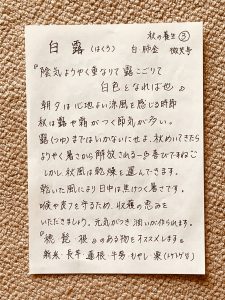 秋の養生③
白露(はくろ) 白 肺金 微笑号
『陰気ようやく重なりて露こごりて
白色となれば也』
朝夕は心地よい涼風を感じる時節
秋は露や霜がつく節気が多い。
露(つゆ)まではいかないにせよ、秋めいてきたら
ようやく暑さから解放される一歩喜びですね
しかし秋風は乾燥を運んできます。
乾いた風により日中は焦げつく暑さです。
喉や炎を守るため、収穫の恵みを
いただきましょう。元気がつき潤いが作られます。
のある物をオススメします。
新米 長芋 蓮根 牛蒡 もやし 栗